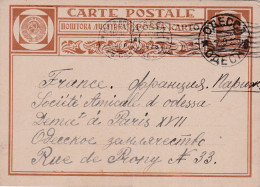 CARTE POSTALE
ПОШТОВА ЛИСТІВКА POSTA KARTO
ОДЕССА
ОДЕСА
France. Франция. Париж
Société Amicale d'odessa
à Paris XVII
Одесское землячество
Rue de Rony N 33.